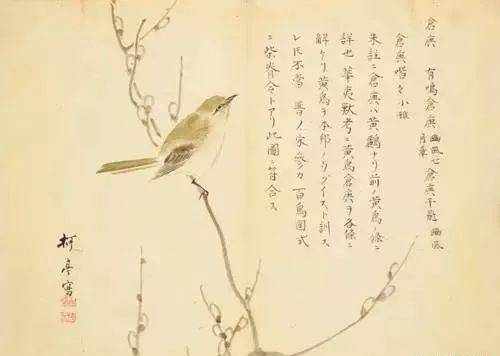 倉庚 有鳴倉庚 豳風七月章 倉庚于飛 豳風
倉庚喈々 小雅
朱註ニ倉庚ハ黄鸝ナリ前ノ黄鳥ノ條ニ
詳也 華夷獣考ニ黄鳥倉庚ヲ各條ニ
解ケリ黄鳥ヲ本邦ノウグイスト訓ス
レ氏不當 百鳥圖式
ニ柴脊令トアリ此圖ニ符合ス
柯亭寫